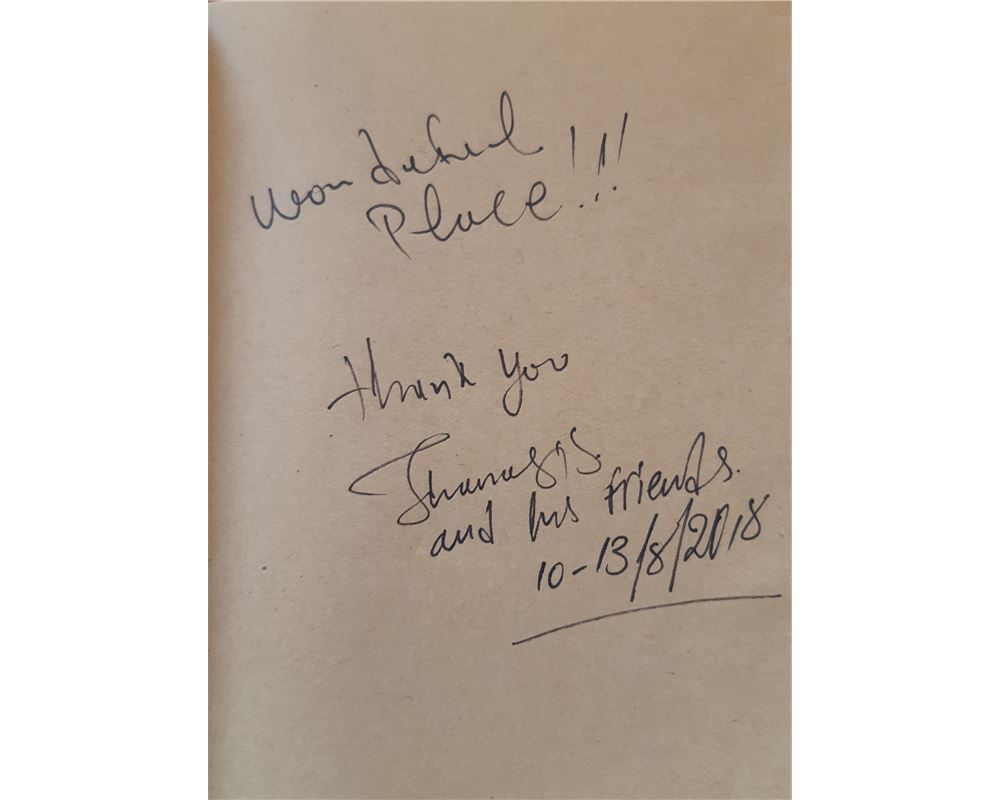 Wonderful
Place!!!
Thank you
Thanasis
and his friends.
10-13/8/2018